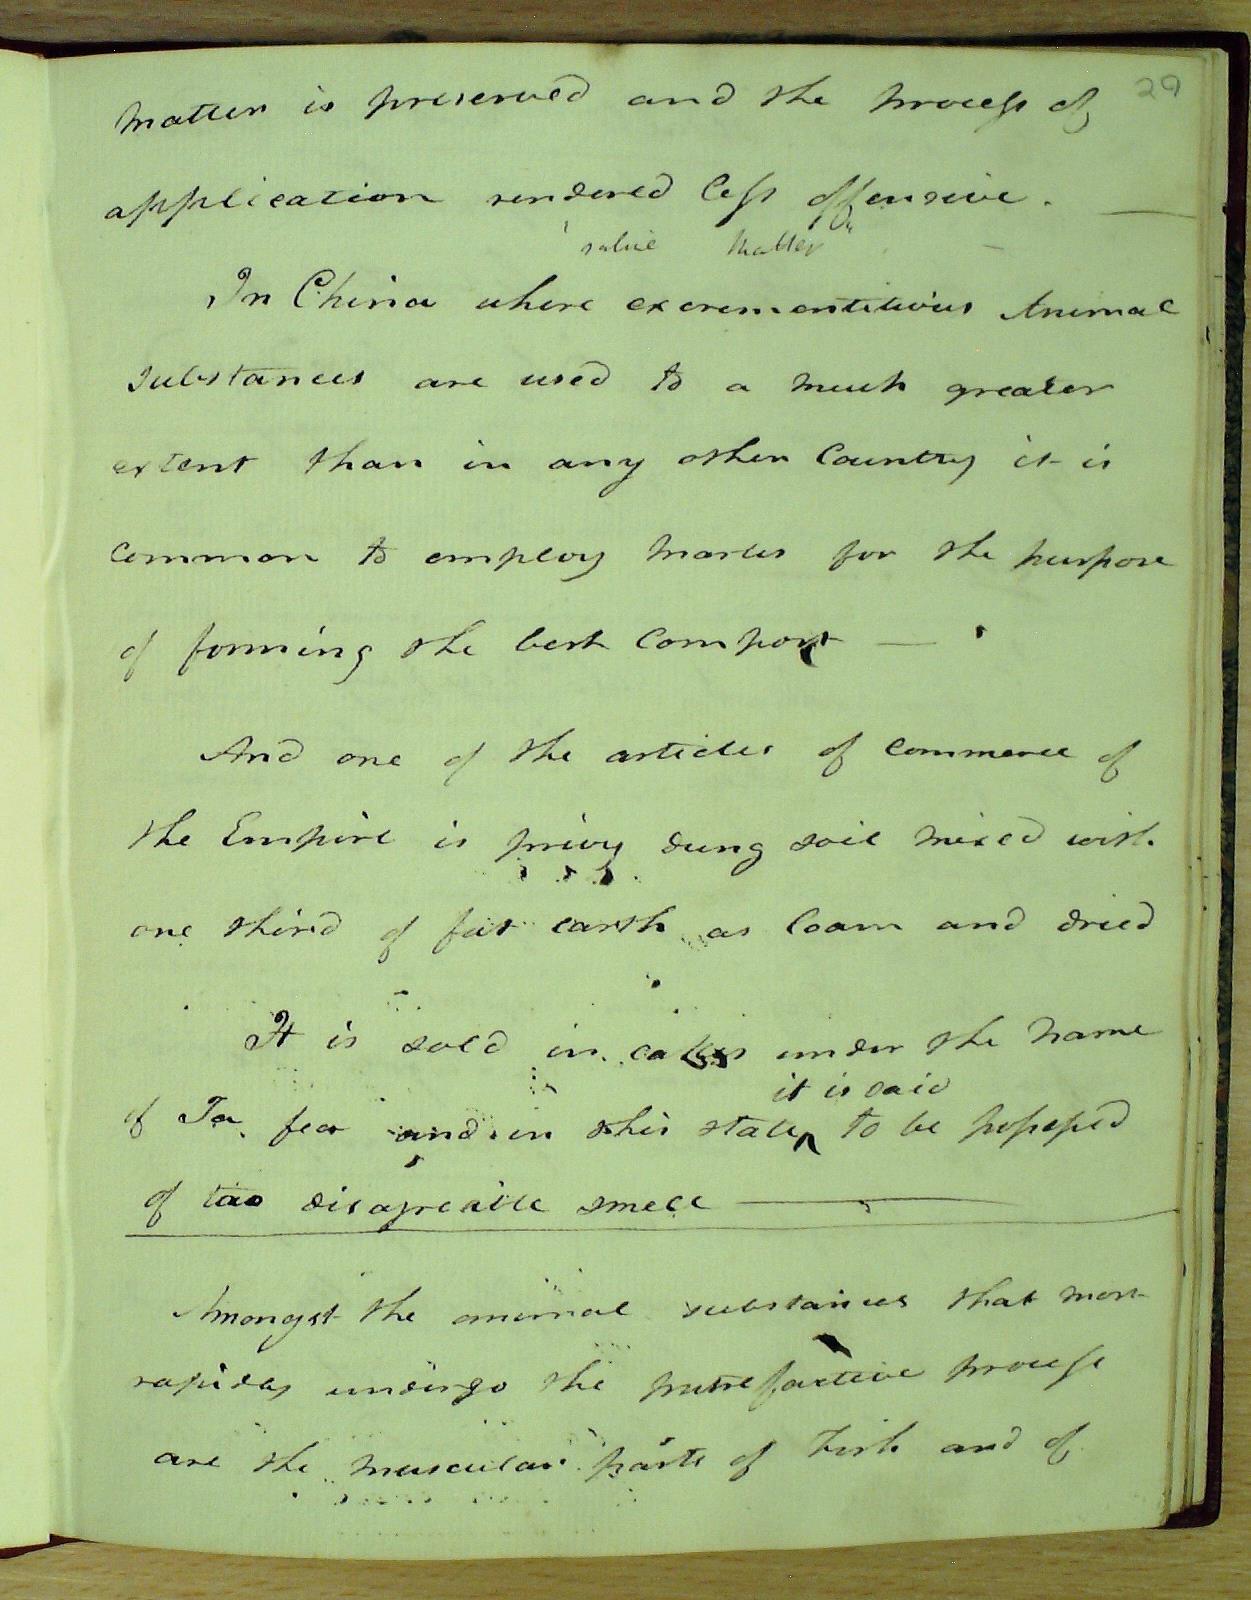 29
matter is preserved and the process of
application rendered less offensive.
value matter
In China where excrementitious Animal
substances are used to a much greater
extent than in any other Country it is
common to employ Marles for the purpose
of forming the best Compost
And one of the articles of commerce of
the Empire is privy dung soil mixed with
one third of fat earth as loam and dried
It is sold in cakes under the name
it is said
of Ta feo and in this state to be possessed
of disagreable smell
Amongst the animal substances that most
rapidly undergo the putrefactive process
are the muscular parts of Fish and of